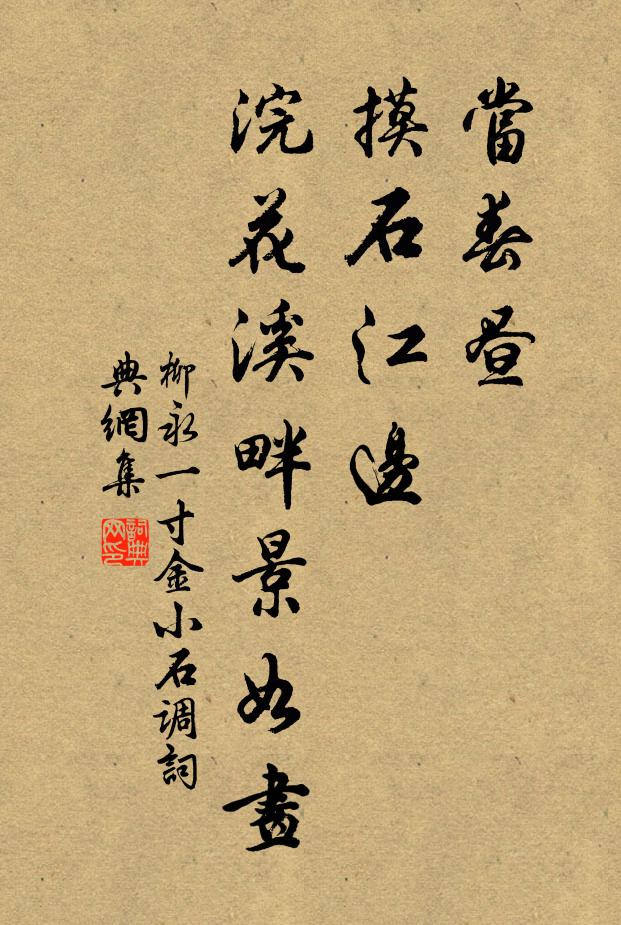 當春晝
摸石江邊
浣花溪畔景如畫
柳永一寸金小石調詞
典網集
詞典网印